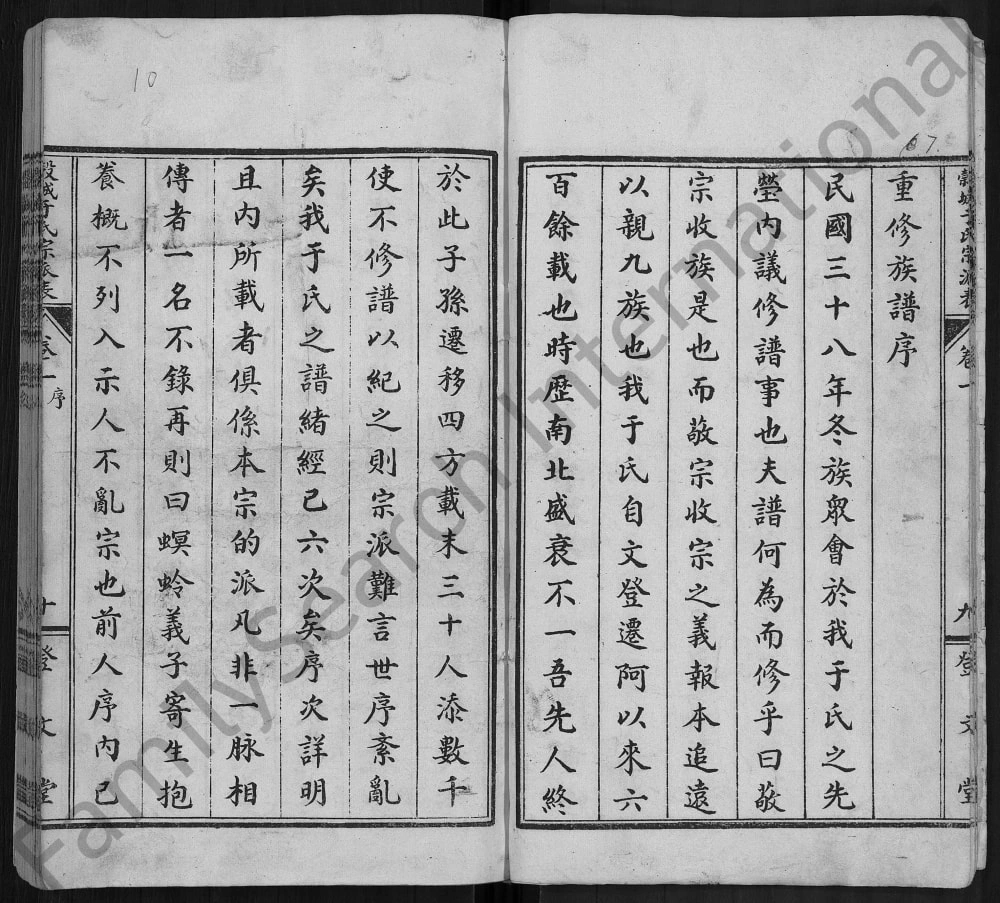 67
穀城于氏宗派表 卷一 九 登文堂
重修族譜序
民國三十八年冬族眾會於我于氏之先
塋內議修譜事也夫譜何為而修乎曰敬
宗收族是也而敬宗收宗之義報本追遠
以親九族也我于氏自文登遷阿以來六
百餘載也時歷南北盛衰不一吾先人終
於此子孫遷移四方載末三十人添數千
使不修譜以紀之則宗派難言世序紊亂
矣我于氏之譜緒經已六次矣序次詳明
且內所載者俱係本宗的派凡非一脉相
傳者一名不錄再則曰螟蛉義子寄生抱
養概不列入示人不亂宗也前人序內已
穀城于氏宗派表 卷一 序 十 登文堂
10
FamilySearch International